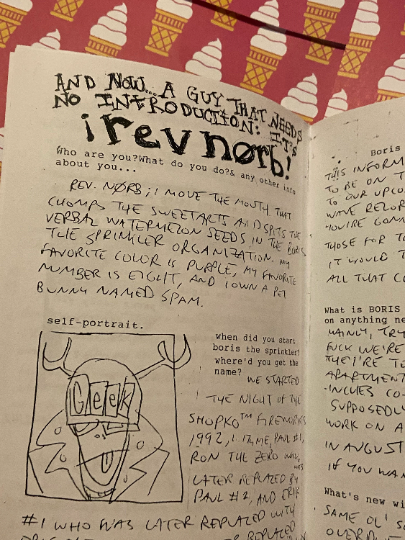 AND NOW... A GUY THAT NEEDS
NO INTRODUCTION: IT'S
¡rev nørb!
Who are you?What do you do?& any other info
about you...
REV. NØRB; I MOVE THE MOUTH THAT
CHOMPS THE SWEETARTS AND SPITS THE
VERBAL WATERMELON SEEDS IN THE BORIS
THE SPRINKLER ORGANIZATION. MY
FAVORITE COLOR IS PURPLE, MY FAVORITE
NUMBER IS EIGHT, AND I OWN A PET
BUNNY NAMED SPAM.
self-portrait.
GEEK
when did you start
boris the sprinkler?
where'd you get the
name?
WE STARTED
THE NIGHT OF THE
SHOPKO™ FIREWORKS
1992, PAUL #1,
RON THE ZERO
LATER REPLACED BY
PAUL #2, AND ERIK
#1 WHO WAS LATER REPLACED WITH
Boris
THIS INFORM
TO BE ON T
TO OUR UPCO
WAVE RECOR
YOU'RE GONN
THOSE FOR T
IT WOULD T
ALL THAT CO
What is BORIS
on anything ne
MAINLY, TRY
FUCK WE'RE
THEY'RE TO
APARTMENT
-INCHES CO
SUPPOSEDLY
WORK ON A
IN AUGUST
IF YOU WAN
What's new wi
SAME OL' S